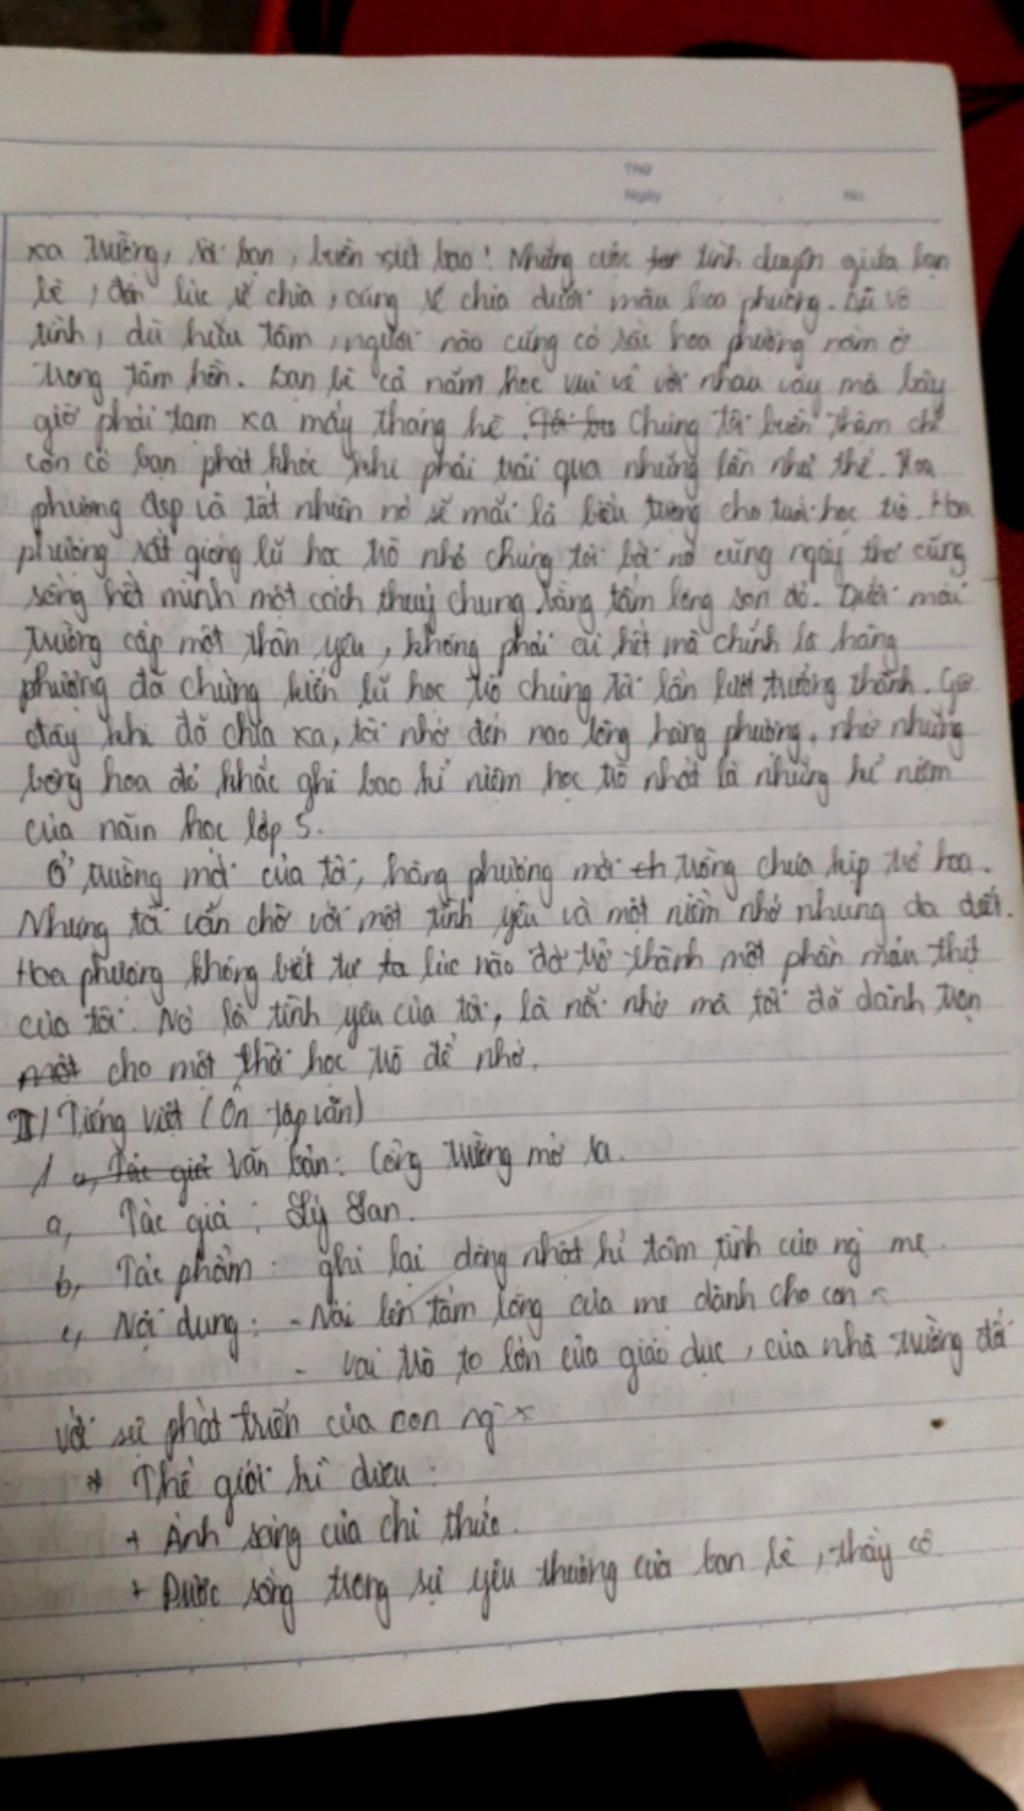 Thứ
Ngày No.
xa trường, rời bạn, buồn xiết bao! Những cuộc tình duyên giữa bạn
bè, đến lúc rẽ chia, cũng rẽ chia dưới màu hoa phượng. Dù vô
tình, dù hữu tâm, người nào cũng có sắc hoa phượng nằm ở
trong tâm hồn. Bạn bè cả năm học vui vẻ với nhau vậy mà bây
giờ phải tạm xa mấy tháng hè. Chúng tôi buồn thậm chí
còn có bạn phát khóc khi phải trải qua những lần như thế. Hoa
phượng đẹp và tất nhiên nó sẽ mãi là biểu tượng cho tuổi học trò. Hoa
phượng rất giống lũ học trò nhỏ chúng tôi bởi nó cũng ngây thơ cũng
sống hết mình một cách thuỷ chung bằng tấm lòng son đỏ. Dưới mái
trường cấp một thân yêu, không phải ai hết mà chính là hàng
phượng đã chứng kiến lũ học trò chúng tôi lần lượt trưởng thành. Giờ
đây khi đã chia xa, tôi nhớ đến nao lòng hàng phượng, nhớ những
bông hoa đỏ khắc ghi bao kỉ niệm học trò nhất là những kỉ niệm
của năm học lớp 5.
Ở trường mới của tôi, hàng phượng mới trồng chưa kịp trổ hoa.
Nhưng tôi vẫn chờ với một tình yêu và một niềm nhớ nhung da diết.
Hoa phượng không biết tự lúc nào đã trở thành một phần máu thịt
của tôi. Nó là tình yêu của tôi, là nỗi nhớ mà tôi đã dành trọn
cho một thời học trò để nhớ.
II/ Tiếng Việt (Ôn tập văn)
1 Văn bản: Cổng trường mở ra.
a, Tác giả: Lý Lan.
b, Tác phẩm: ghi lại dòng nhật kí tâm tình của ng mẹ.
c, Nội dung: - Nói lên tấm lòng của mẹ dành cho con
- Vai trò to lớn của giáo dục, của nhà trường đối
với sự phát triển của con ng
* Thế giới kì diệu:
+ Ánh sáng của chi thức.
+ Được sống trong sự yêu thương của bạn bè, thầy cô